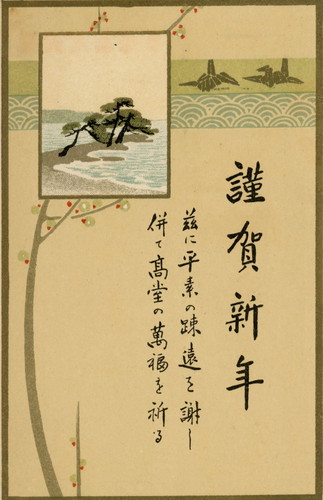 謹賀新年
茲に平素の疎遠を謝し
併て高堂の萬福を祈る